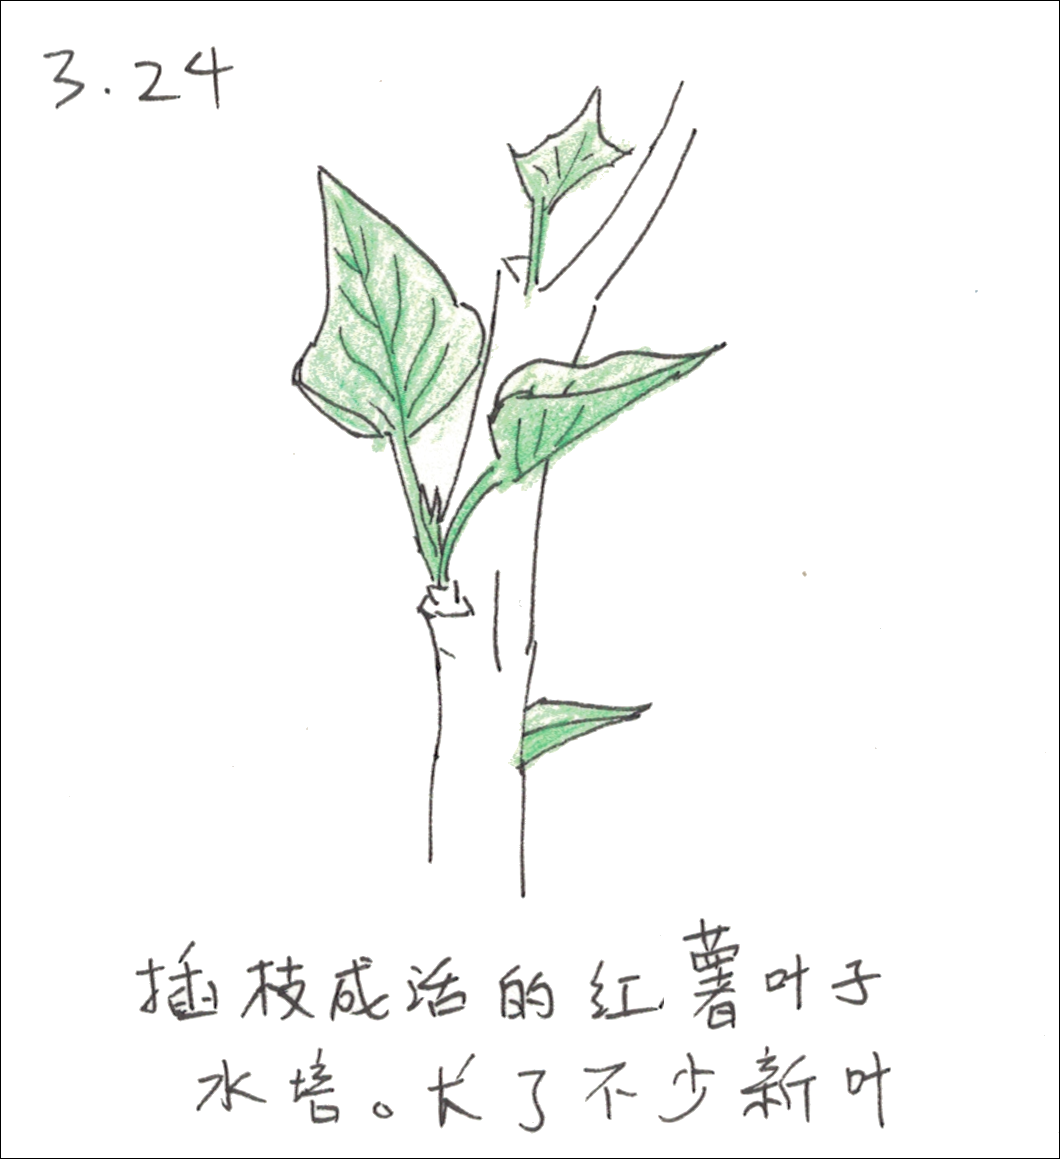 3.24
插枝成活的红薯叶子
水培。长了不少新叶